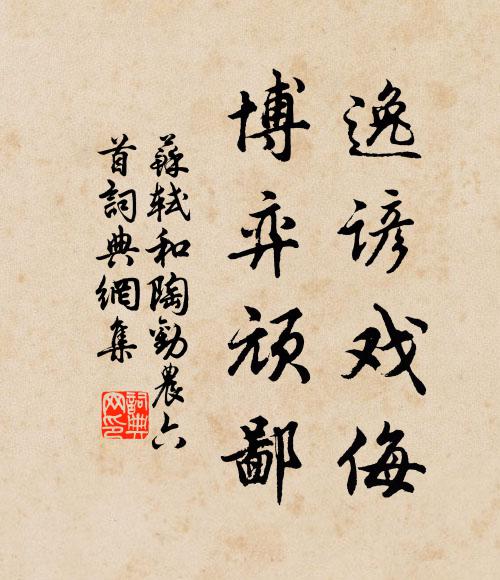 逸諺戏侮
博弈顽鄙
蘇軾和陶勸農六
首詞典網集
詞典
网印